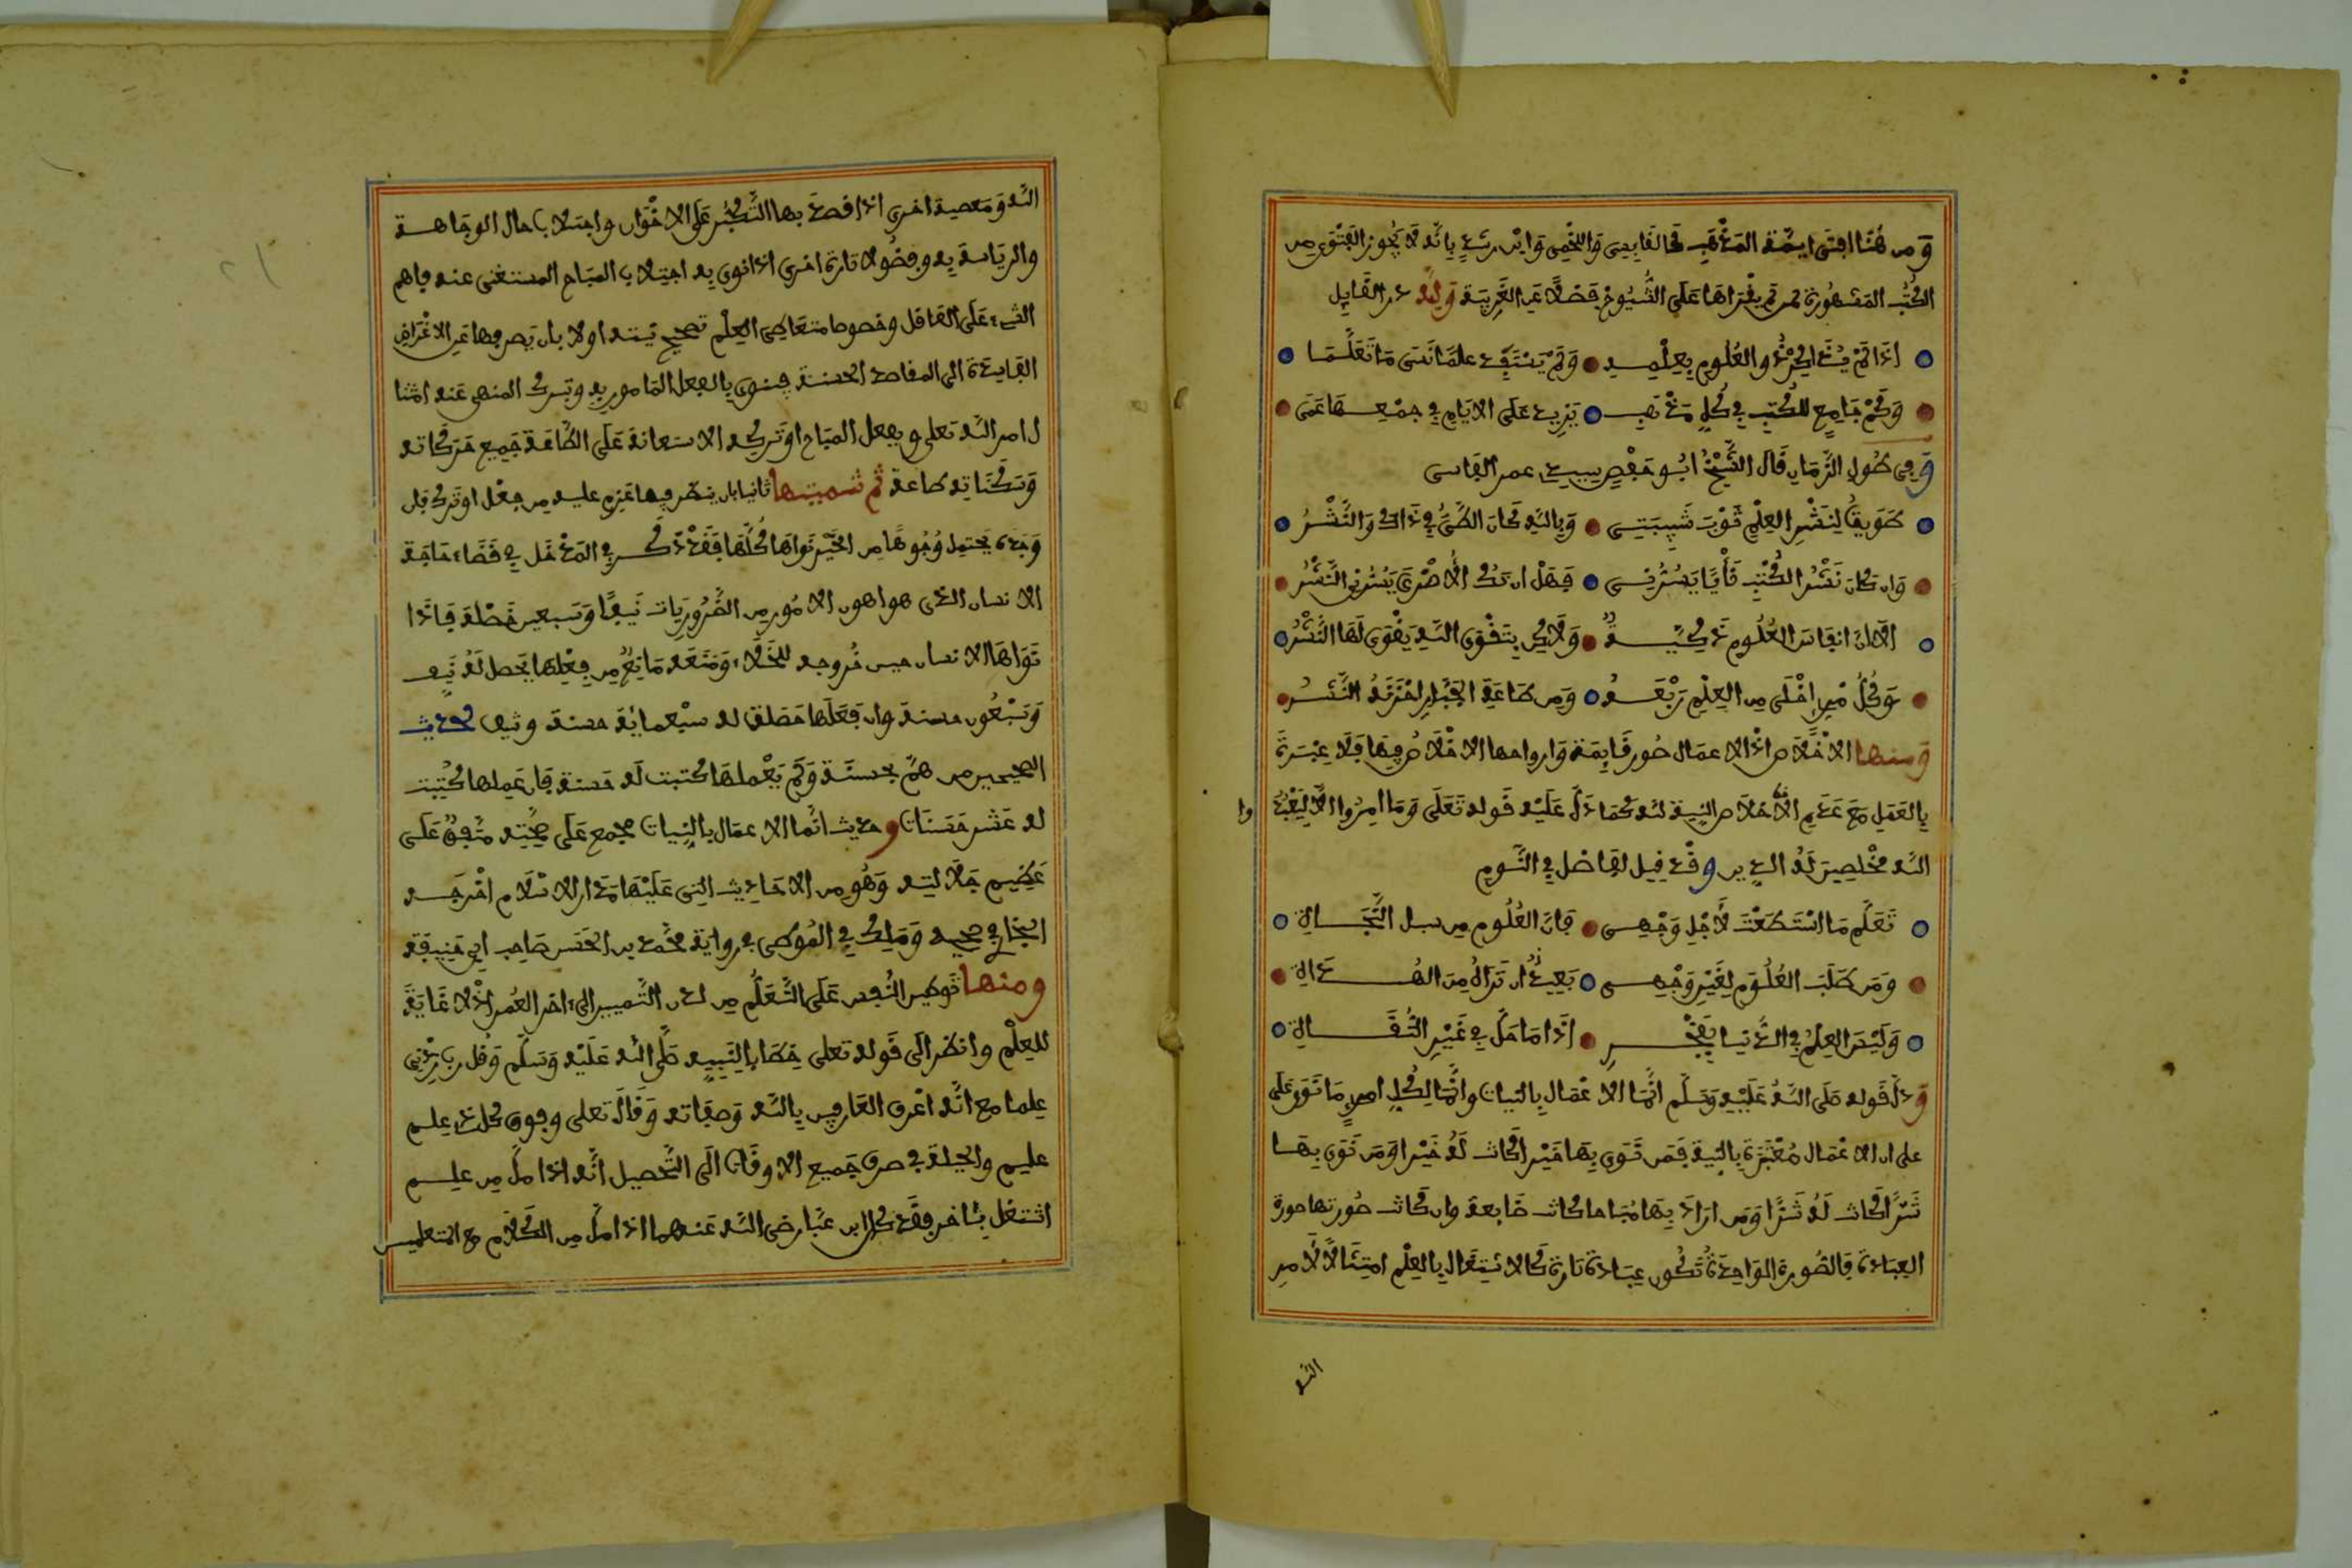 وَمِن هُنَا افتى ايمّة المَذْهَبِ كالقَابِسِي وَاللخْمِي وَابْن رشْدٍ بِانّه لَا يَجُوز الفَتْوَى مِن
الكُتُب المَشهُورة لمن لم يقْرَاهَا عَلَى الشُّيُوخ فَضْلًا عَن الغَرِيبَة وَلله در القَايِل
اذَا لَمْ يُذَاكِرْ ذُو العُلُوم بِعِلْمِهِ وَلَمْ يَسْتَفِد علمًا نَسَى مَا تَعَلَّمَا
وَكَمْ جَامِعٍ للكُتبِ في كُلِّ مَذْهَبٍ يَزِيد عَلَى الايّامِ في جمْعِهَا عَمَى
وَفي طُولِ الزَّمَانِ قَال الشَّيْخُ ابُو حَفْصٍ سيدي عمر الفَاسى
طَوَيتُ لِنَشْرِ العِلْمِ ثَوْبَ شَبِيبَتِي وَبِاللهِ كَانَ الطَّيُّ في ذَاكَ وَالنَّشْرُ
وَان كَانَ نَشْرُ الكُتْبِ قَبْلُ يَسُرُّنِي فَهَل ان تَكُ الاُخْرَى يَسُرُّنِي النَّشْرُ
الَا انّ انفَاسَ العُلُوم ذَكِيَّةٌ وَلَاكِن بِتَقْوَى اللهِ يَقْوَى لَهَا النَّشْرُ
وَكُلُّ مَنْ اخْلَى مِن العِلْمِ رَبْعَهُ وَمِن طَاعَةِ الجَبّارِ احْرَزَهُ النَّسْرُ
وَمنها الاخْلَاص اذ الاعمَال صُور قَايِمَة وَارواحها الاخْلَاص فِيهَا فَلَا عِبْرَة
بِالعَمَلِ مَعَ عَدَمِ الاخلَاص النِية لله كَمَا دَلّ عَلَيْه قَوله تَعَلَى وَمَا امِرُوا الّا لِيَعْبُدُوا
الله مخْلصِين لَهُ الدِين وقَدْ قِيل لفاضل في النَّومِ
تَعَلَّم مَا اسْتَطَعْتَ لاَجْلِ وَجْهِي فَانّ العُلُوم مِن سبل النَّجَاةِ
وَمَن طَلَبَ العُلُوم لِغَيْرِ وَجْهِي بَعِيدٌ ان تَرَاهُ مِنَ الهُدَاةِ
وَلَيْسَ العِلْمُ في الدُّنيَا بِفَخْرٍ اذَا مَا حَلّ في غَيْرِ الثُّقَاةِ
وَدلّ قَوله صَلى اللهُ عَلَيْهِ وَسَلّم انّمَا الاعْمَال بِالنيات وانّمَا لِكُلِّ امرِئٍ مَا نَوَى عَلَى
على ان الاعْمَال مُعْتَبَرَة بِالنِية فَمَن نَوَى بِهَا خَيْرا كَانت لَهُ خَيْرا وَمَن نَوى بِهَا
شَرًّا كَانت لَهُ شَرًّا وَمَن ارَادَ بِهَا مُبَاحا كانت ضَايعة وان كَانت صُورتها صورة
العِبَادَة فَالصُّورة الوَاحِدَةُ تَكُون عِبَادَة تَارة كَالاشتِغَال بِالعِلْم امتِثَالًا لامر
الله
الله وَمَعصية اخرى اذا قصدَ بها التَّكَبُّر عَلَى الاخْوَان واجتلاب امال الوجَاهة
والريَاسة به وفضُولا تارة اخرى اذا نوى به اجتلاب المبَاح المستغنى عنه فاهم
الشيء عَلَى العَاقل وخصوصا متعَاطِي العِلْم تصحيح نيته اولا بان يَصرفها عَن الاغْرَاض
الفَاسدَة الى المقاصد الحسنة فينوى بالفِعل المَامور به وبترك المنهى عَنه امتثا
ل امر الله تعلى وبفعل المبَاح اوتَركه الاستعانة عَلَى الطّاعَة جَمِيع حَرَكاته
وَسَكَنَاته طاعة ثم تنميتها ثانيا بان ينظر فيها عَزم عليه مِن فعْل اوتَرك فان
وَجَدَه يحتمِل وُجُوهًا مِن الخَيْر نَوَاهَا كُلّها فَقَدْ ذكر في المَدْخَل في قَضَاء حَاجَة
الانسان الذى هو اهون الامُور مِن الضَّرُورِيَات نَيِّفًا وَسبعين خَصْلة فَاذَا
نَوَاهَا الانسان حِين خُروجه للخَلَاء وَمَنَعَه مَانِعٌ مِن فِعْلِهَا يَحصل لَهُ نَيِّف
وَسَبْعُون حسنة وان فَعَلَها حَصَلت له سبْعمائة حسنة ونيف لحديث
الصحيحين من همَّ بحسنَة وَلَم يَعْملهَا كتبت لَه حَسنة فَان عَمِلها كُتِبت
له عَشر حَسَنَات وحَدِيث انّما الاعمَال بِالنِّيات مجمع عَلَى صِحّتِه متّفِقٌ عَلَى
عَظِيم جَلالته وَهُو مِن الاحَاديث التي عَلَيْهَا مدَار الاسْلام اخْرجَه
البخَاري في صحيحه وَمَالِك في المُوطّى في رواية محمّد بن الحَسن صَاحِب ابي حَنِيفَة
ومنها تَوطين النَّفس عَلَى التَّعَلُّم من لدن التَّمييز الى اخر العُمر اذْ لا غَايَة
للعِلْم وانظر الَى قَوله تعلى خِطَابا لنَبِيه صَلّى الله عَلَيْه وَسَلّم وَقُل رب زِدْني
عِلما مع انَّه اعْرف العَارفِين بِالله وَصِفَاته وَقَالَ تعلى وفوق كل ذِي عِلم
عليم والحِيلة في صرف جَميع الاوقَات الَى التَّحصيل انَّه اذا ملّ مِن علم
اشتغل بئاخر فقَد كان ابن عبَّاس رضى الله عَنهما اذا ملّ مِن الكَلام مع المتعلمين